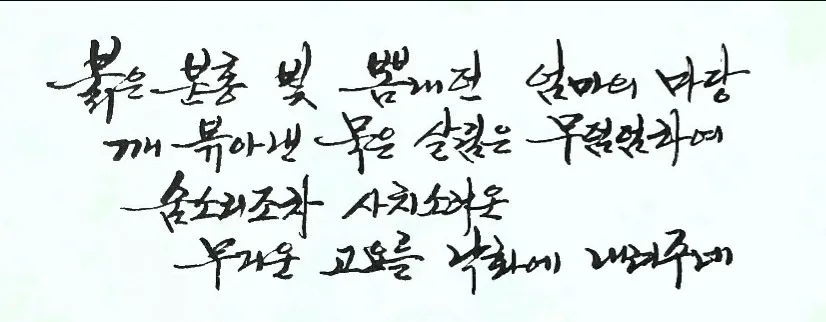 붉은 분홍 빛 뽐내던 엄마의 마당
깨 볶아낸 묵은 살림은 무덤덤하여
숨소리조차 사치스러운
무거운 고요를 낙화에 내려주네